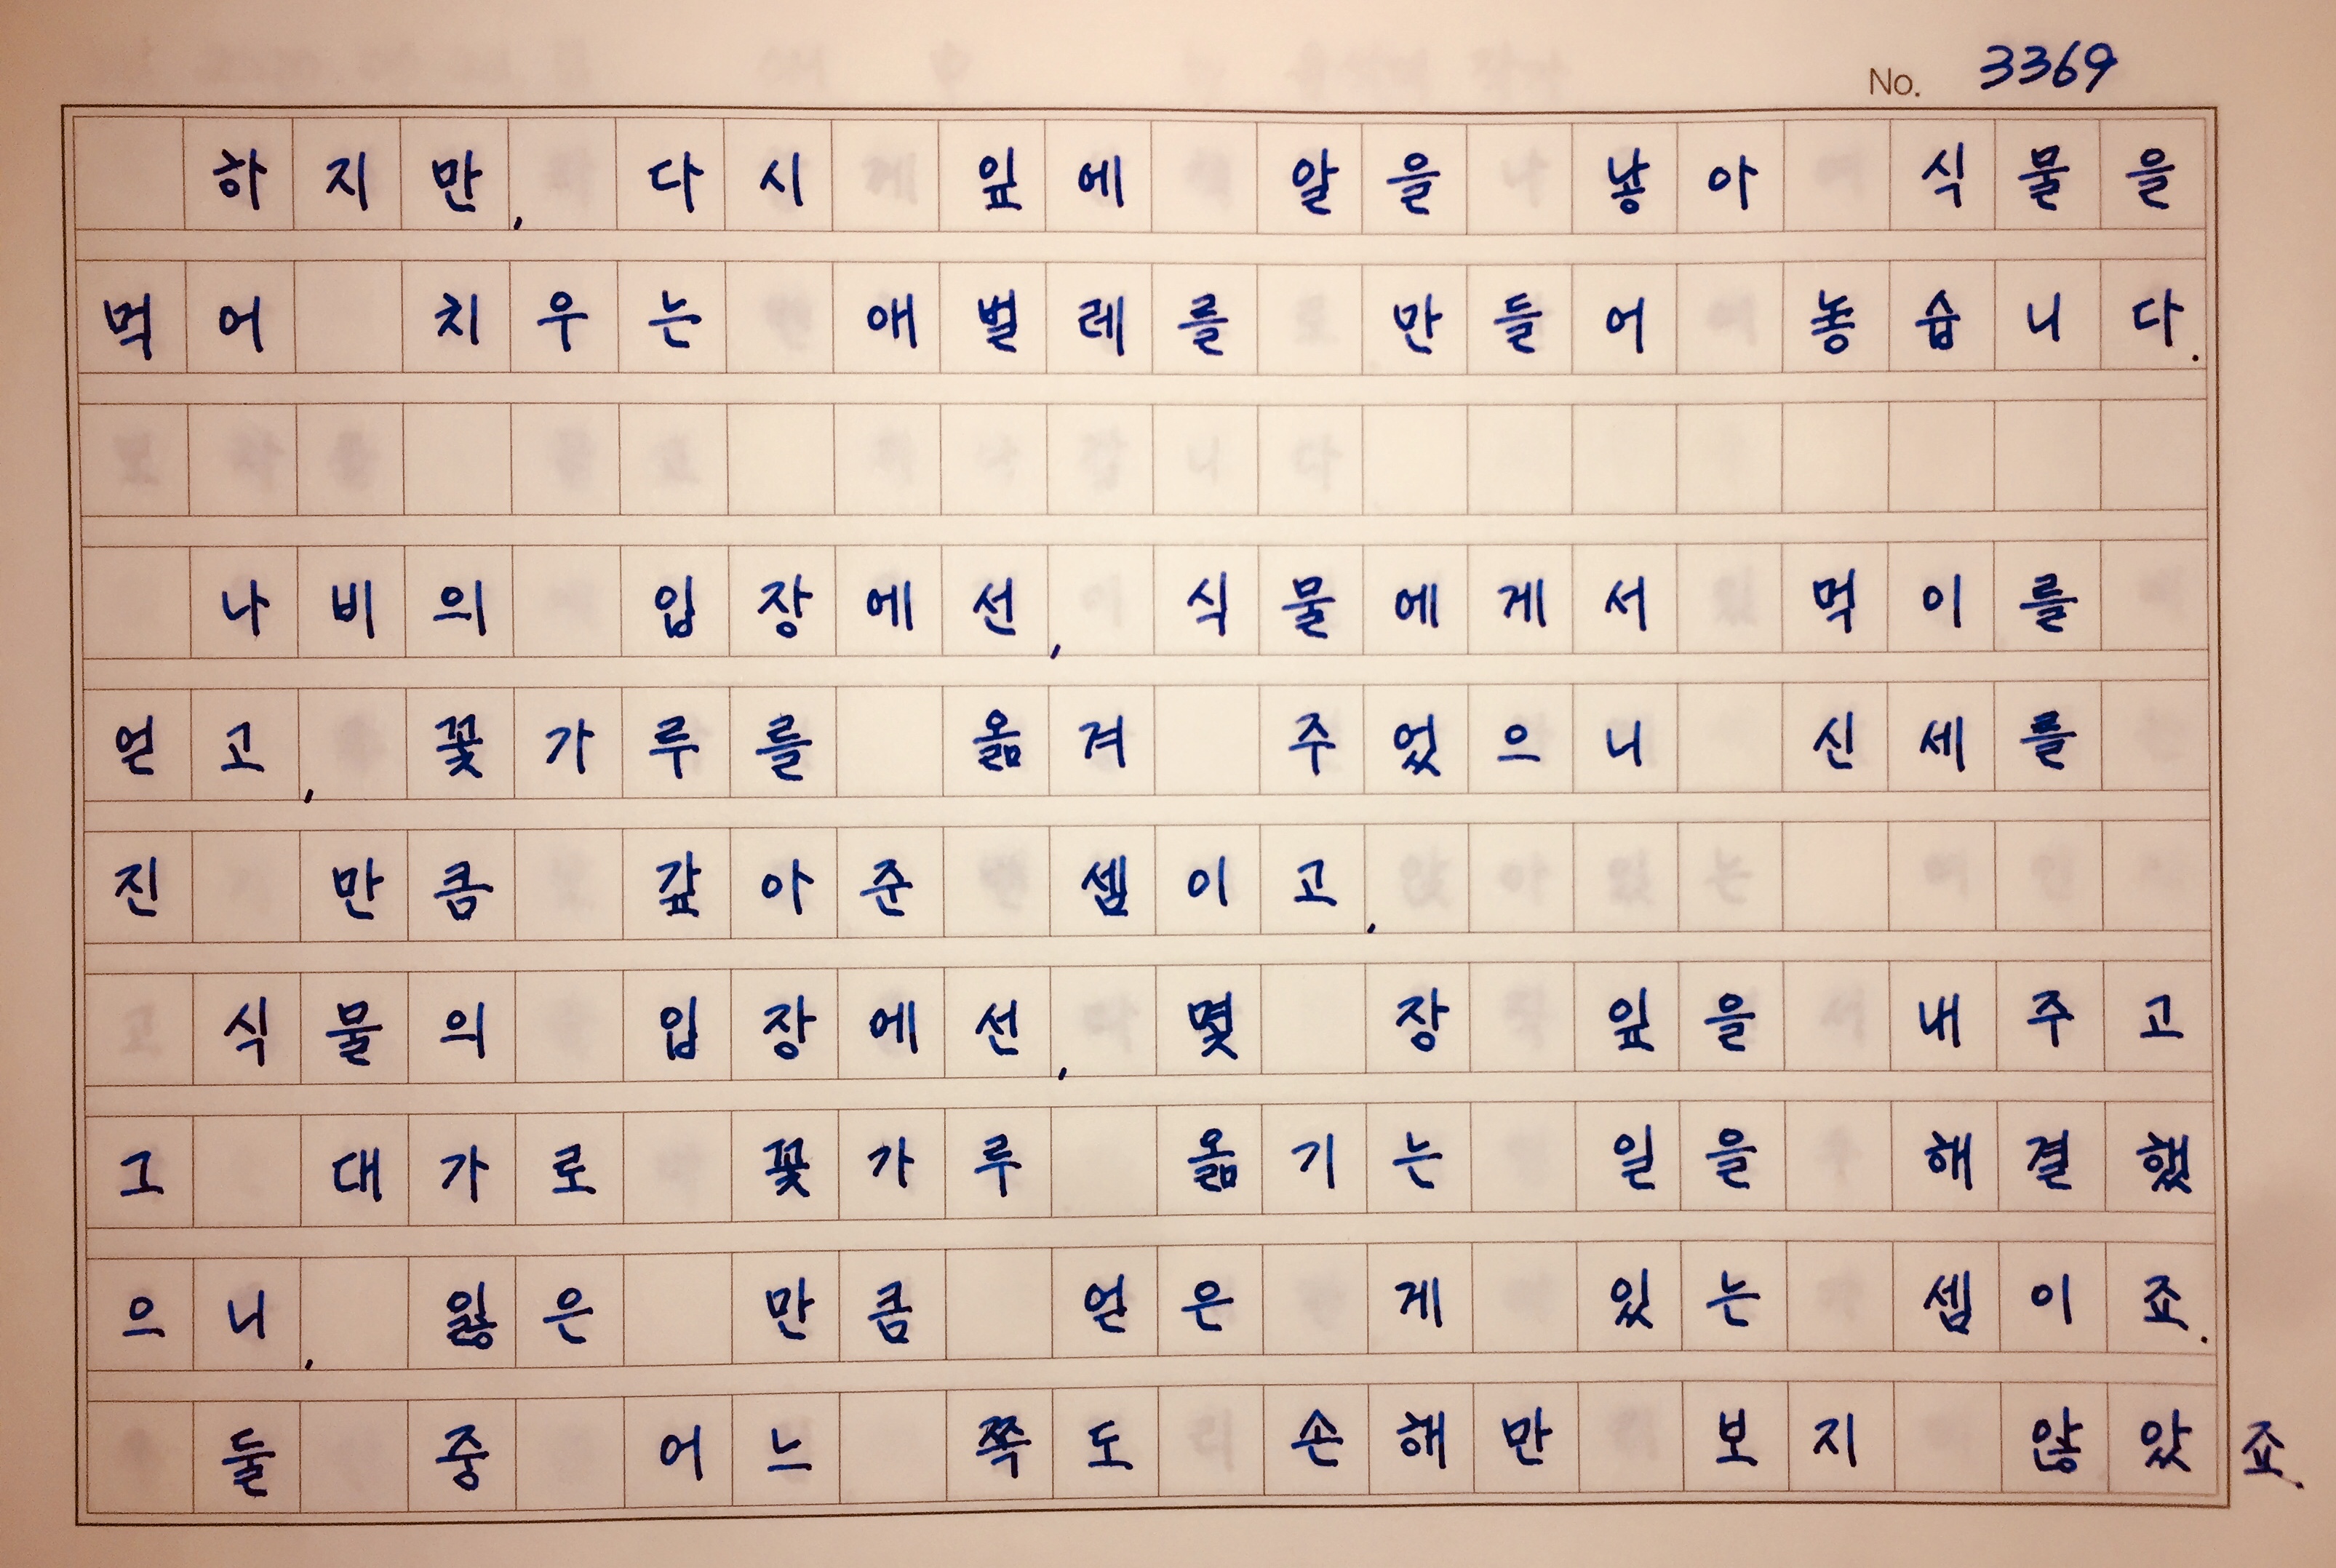 No. 3369
하지만, 다시 잎에 알을 낳아 식물을
먹어 치우는 애벌레를 만들어 놓습니다.
나비의 입장에선, 식물에게서 먹이를
얻고, 꽃가루를 옮겨 주었으니 신세를
진 만큼 갚아준 셈이고,
식물의 입장에선, 몇 장 잎을 내주고
그 대가로 꽃가루 옮기는 일을 해결했
으니, 잃은 만큼 얻은 게 있는 셈이죠.
둘 중 어느 쪽도 손해만 보지 않았죠.